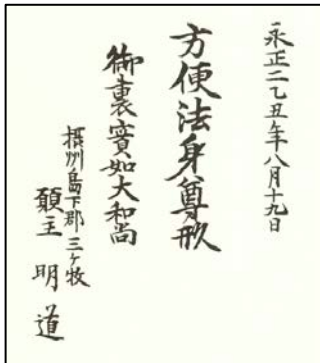 永正二乙丑年八月十九日
方便法身尊形
御裏實如大和尚
摂州島下郡三ケ牧
願主 明道